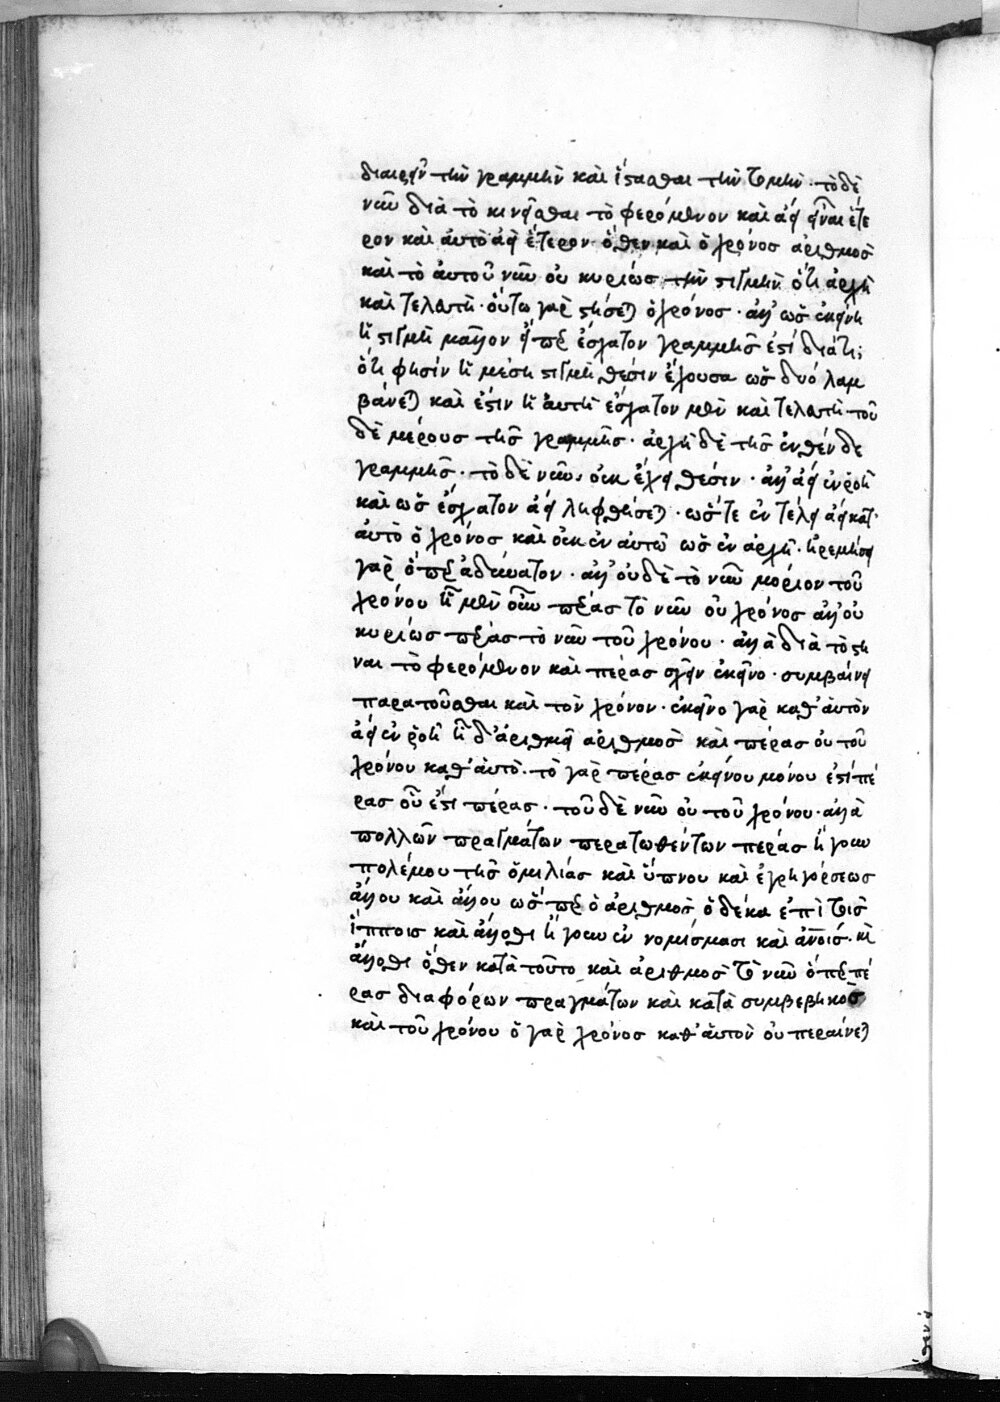 διαιρεῖν τὴν γραμμὴν καὶ ἵστασθαι τὴν τομήν· τὸ δὲ
νῦν διὰ τὸ κινεῖσθαι τὸ φερόμενον καὶ ἀεὶ εἶναι ἕτε
ρον καὶ αὐτὸ ἀεὶ ἕτερον· ὅθεν καὶ ὁ χρόνος ἀριθμὸς
καὶ τὸ αὐτοῦ νῦν οὐ κυρίως τὴν στιγμὴν ὅτι ἀρχὴ
καὶ τελευτή· οὕτω γὰρ στήσεται ὁ χρόνος· ἀλλ' ὡς ἐκείνη
ἡ στιγμὴ μᾶλλον ᾗπερ ἔσχατον γραμμῆς ἐστί διάτι;
ὅτι φησίν ἡ μέση στιγμὴ θέσιν ἔχουσα ὡς δυό λαμ
βάνεται καὶ ἔστιν ἡ αὐτὴ ἔσχατον μὲν καὶ τελευτὴ τοῦ
δὲ μέρους τῆς γραμμῆς· ἀρχὴ δὲ τῆς ἐνθένδε
γραμμῆς· τὸ δὲ νῦν, οὐκ ἔχει θέσιν· ἀλλ' ἀεὶ ἐν ῥοῇ
καὶ ὡς ἔσχατον ἀεὶ ληφθήσεται· ὥστε ἐν τέλει ἀεὶ κατ'
αὐτὸ ὁ χρόνος καὶ οὐκ ἐν αὐτῷ ὡς ἐν ἀρχῇ· ἠρεμήσει
γὰρ ὅπερ ἀδύνατον· ἀλλ' οὐδὲ τὸ νῦν μόριον τοῦ
χρόνου ᾗ μὲν οὖν πέρας τὸ νῦν οὐ χρόνος ἀλλ' οὐ
κυρίως πέρας τὸ νῦν τοῦ χρόνου· ἀλλὰ διὰ τὸ στῆ
ναι τὸ φερόμενον καὶ πέρας σχεῖν ἐκεῖνο· συμβαίνει
περατοῦσθαι καὶ τὸν χρόνον· ἐκεῖνο γὰρ καθ' αὑτὸν
ἀεὶ ἐν ῥοῇ ᾗ δ' ἀριθμεῖ ἀριθμὸς καὶ πέρας οὐ τοῦ
χρόνου καθ' αὑτὸ· τὸ γὰρ πέρας ἐκείνου μόνου ἐστὶ πέ
ρας οὗ ἐστι πέρας· τοῦ δὲ νῦν οὐ τοῦ χρόνου· ἀλλὰ
πολλῶν πραγμάτων περατωθέντων πέρας ἤγουν
πολέμου τῆς ὁμιλίας καὶ ὕπνου καὶ ἐγρηγόρσεως
ἄλλου καὶ ἄλλου ὥσπερ ὁ ἀριθμὸς ὁ δέκα ἐπὶ τοῖς
ἵπποις καὶ ἄλλοθι ἤγουν ἐν νομίσμασι καὶ ἀνοις· καὶ
ἄλλοθι ὅθεν κατὰ τοῦτο καὶ ἀριθμὸς τὸ νῦν ὅπερ πέ
ρας διαφόρων πραγμάτων καὶ κατὰ συμβεβηκὸς
καὶ τοῦ χρόνου ὁ γὰρ χρόνος καθ' αὑτὸν οὐ περαίνεται